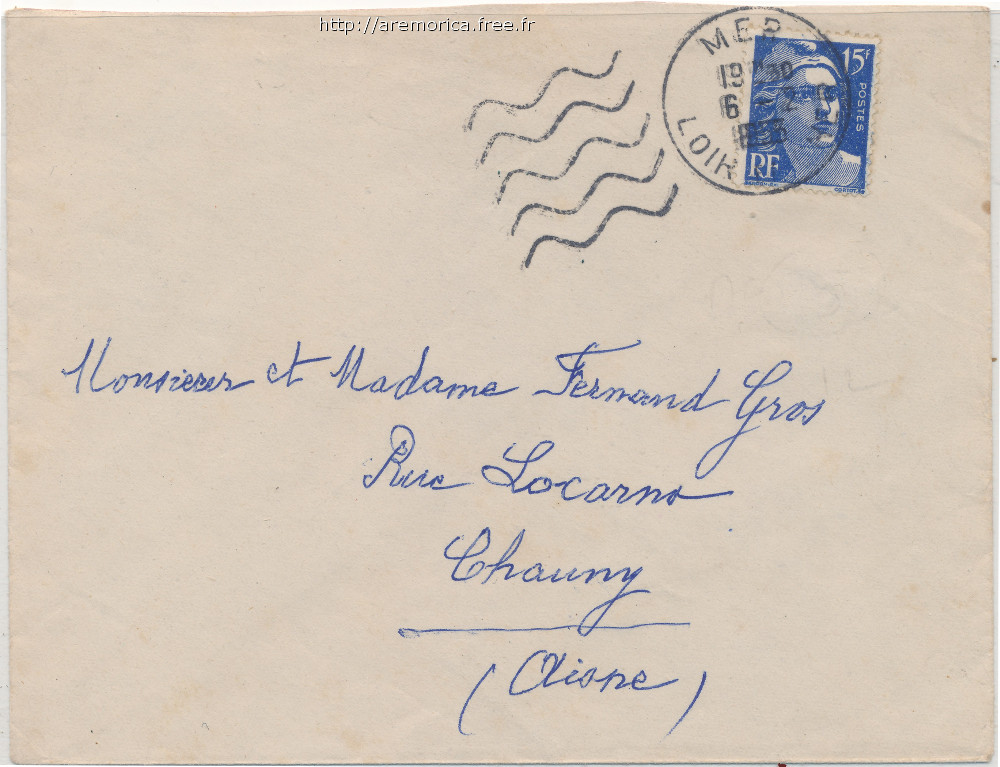 http://aremorica.free.fr
MER
19 30
6 - 2
LOIR
15F
POSTES
RF
Monsieur et Madame Fernand Gros
Rue Locarno
Chauny
(Aisne)